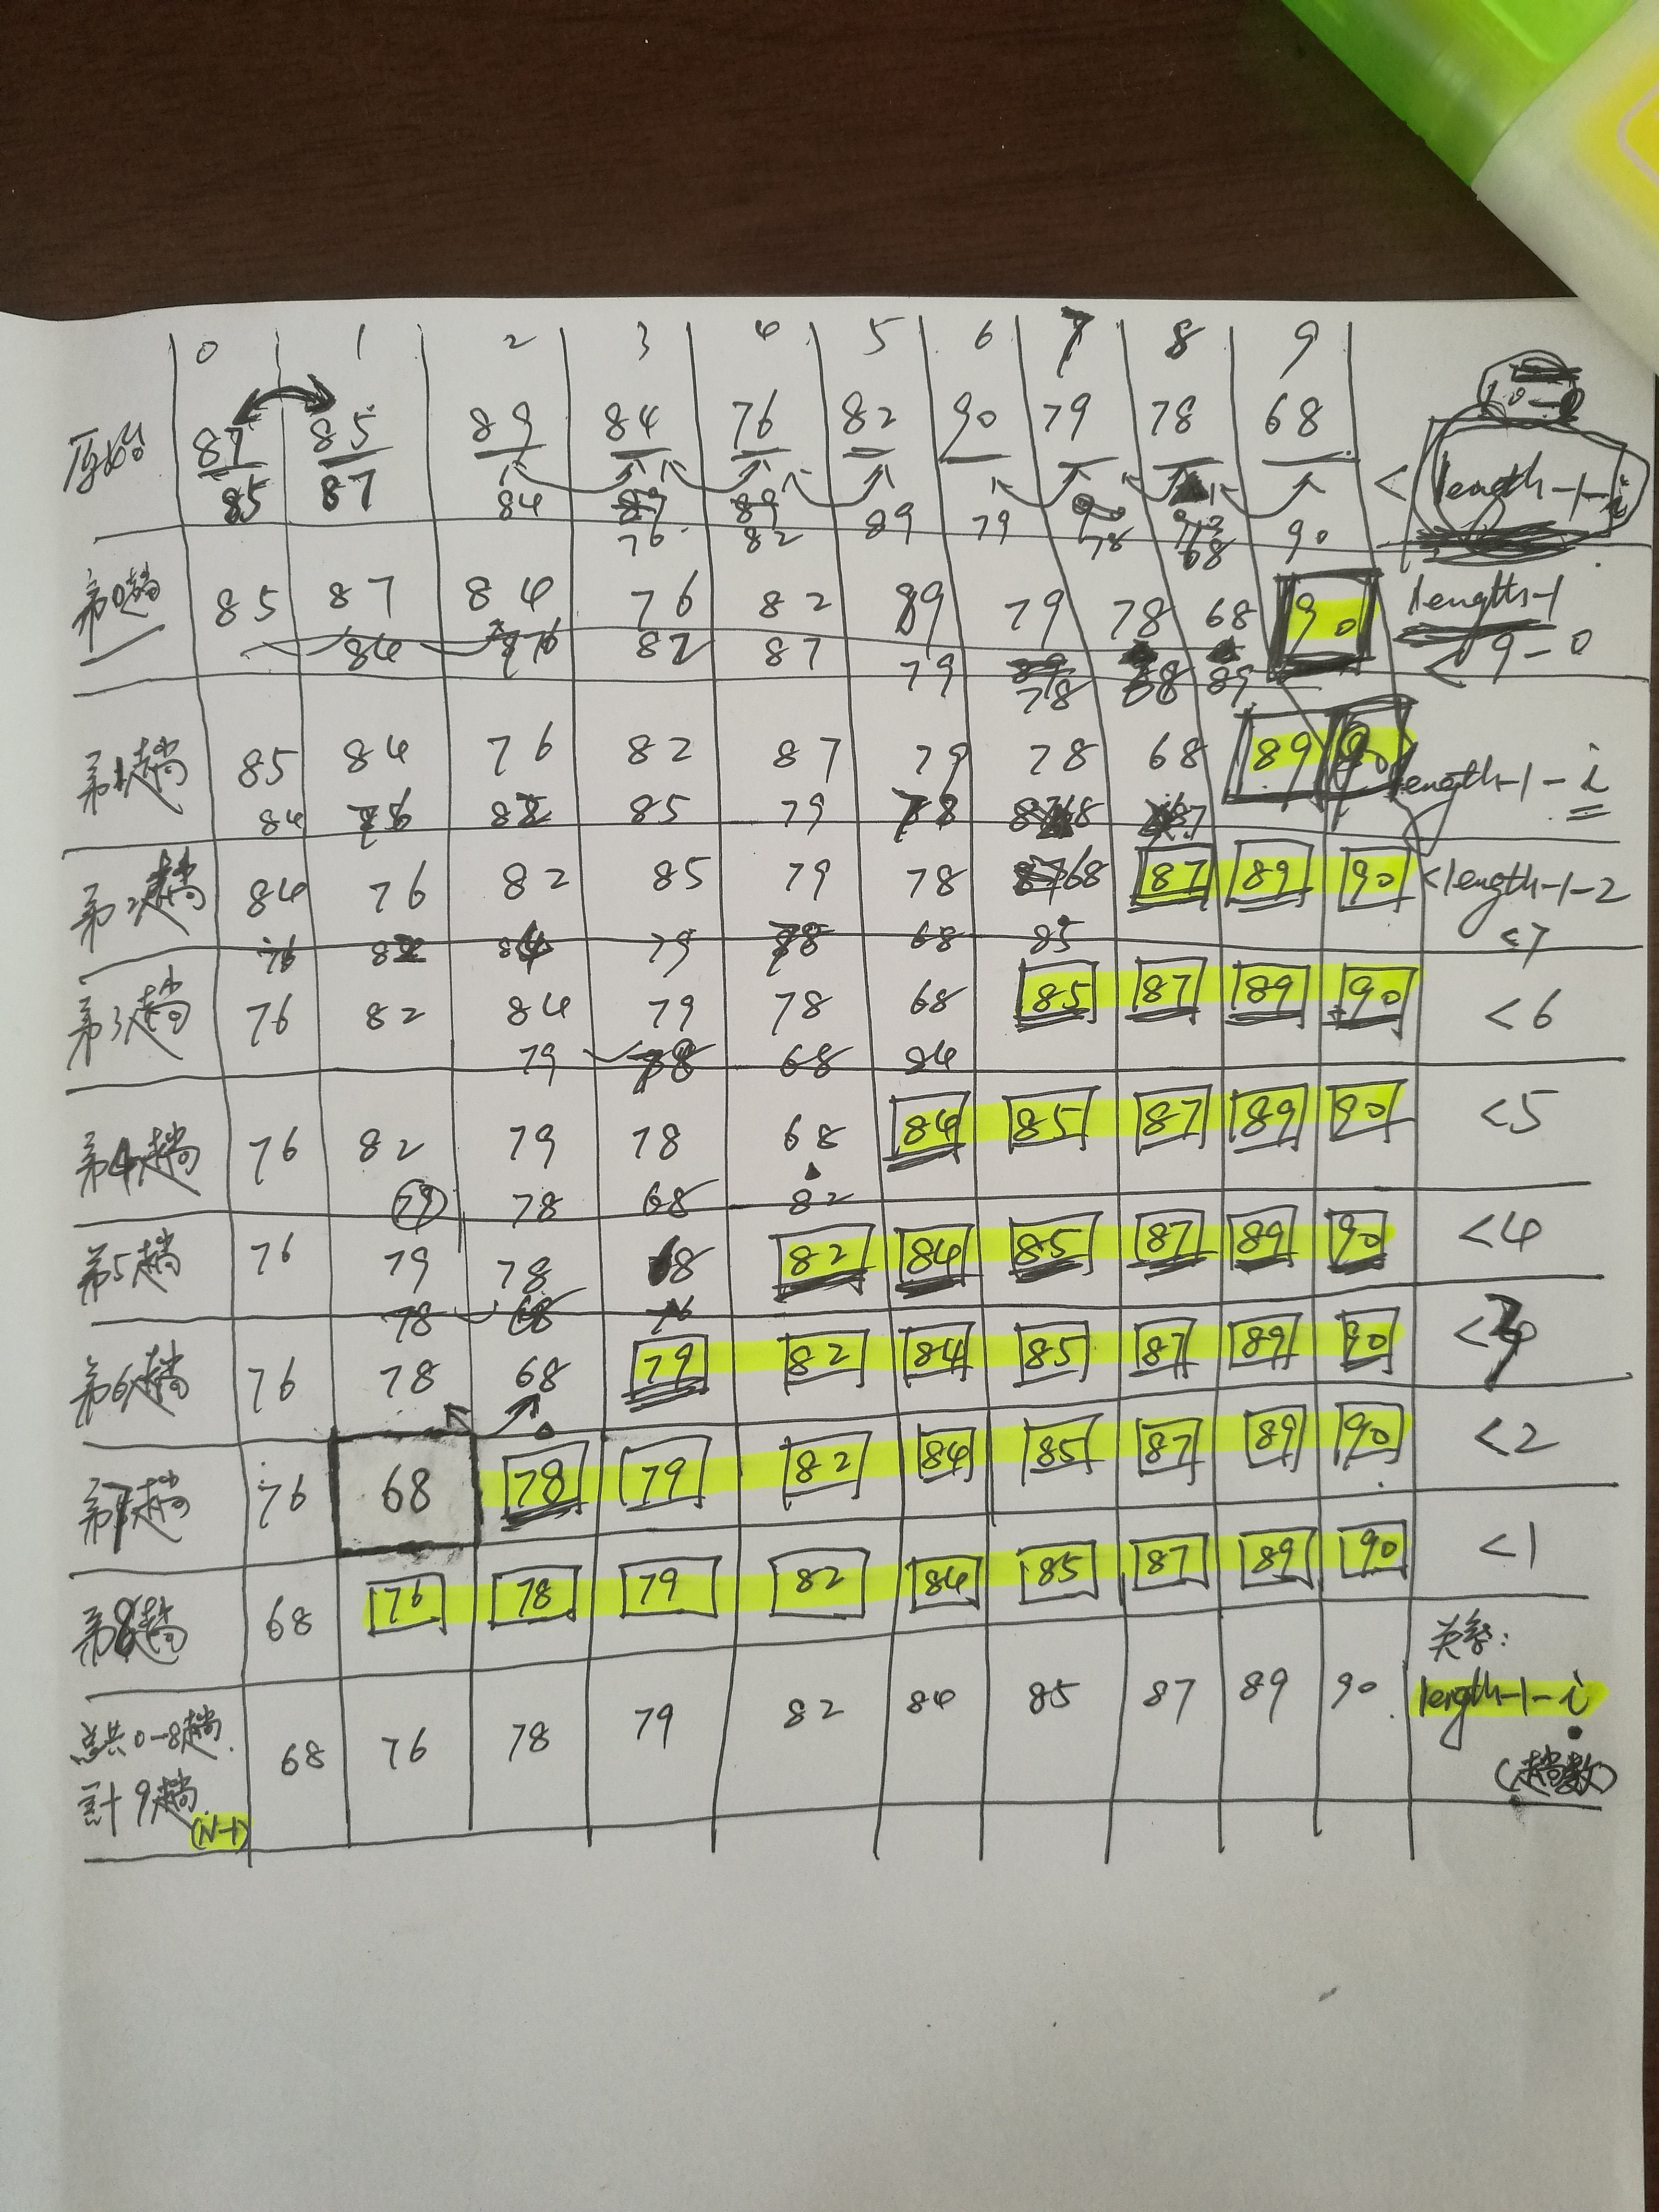 0 1 2 3 4 5 6 7 8 9
原始 87 85 89 84 76 82 90 79 78 68 < length-1-i
85 87 84 89 89 89 79 90
76 82 78 68
第0趟 85 87 84 76 82 89 79 78 68 90 length-1
84 76 82 87 79 78 68 89 < 9-0
第1趟 85 84 76 82 87 79 78 68 89 90 length-1-i
84 76 82 85 79 78 68 87
第2趟 84 76 82 85 79 78 68 87 89 90 <length-1-2
76 82 84 79 78 68 85 <7
第3趟 76 82 84 79 78 68 85 87 89 90 <6
79 78 68 84
第4趟 76 82 79 78 68 84 85 87 89 90 <5
79 78 68 82
第5趟 76 79 78 68 82 84 85 87 89 90 <4
78 68
第6趟 76 78 68 79 82 84 85 87 89 90 <3
第7趟 76 68 78 79 82 84 85 87 89 90 <2
第8趟 68 76 78 79 82 84 85 87 89 90 <1
总共0-8趟. 68 76 78 79 82 84 85 87 89 90 关系:
计9趟 length-1-i
(N-1) (趟数)